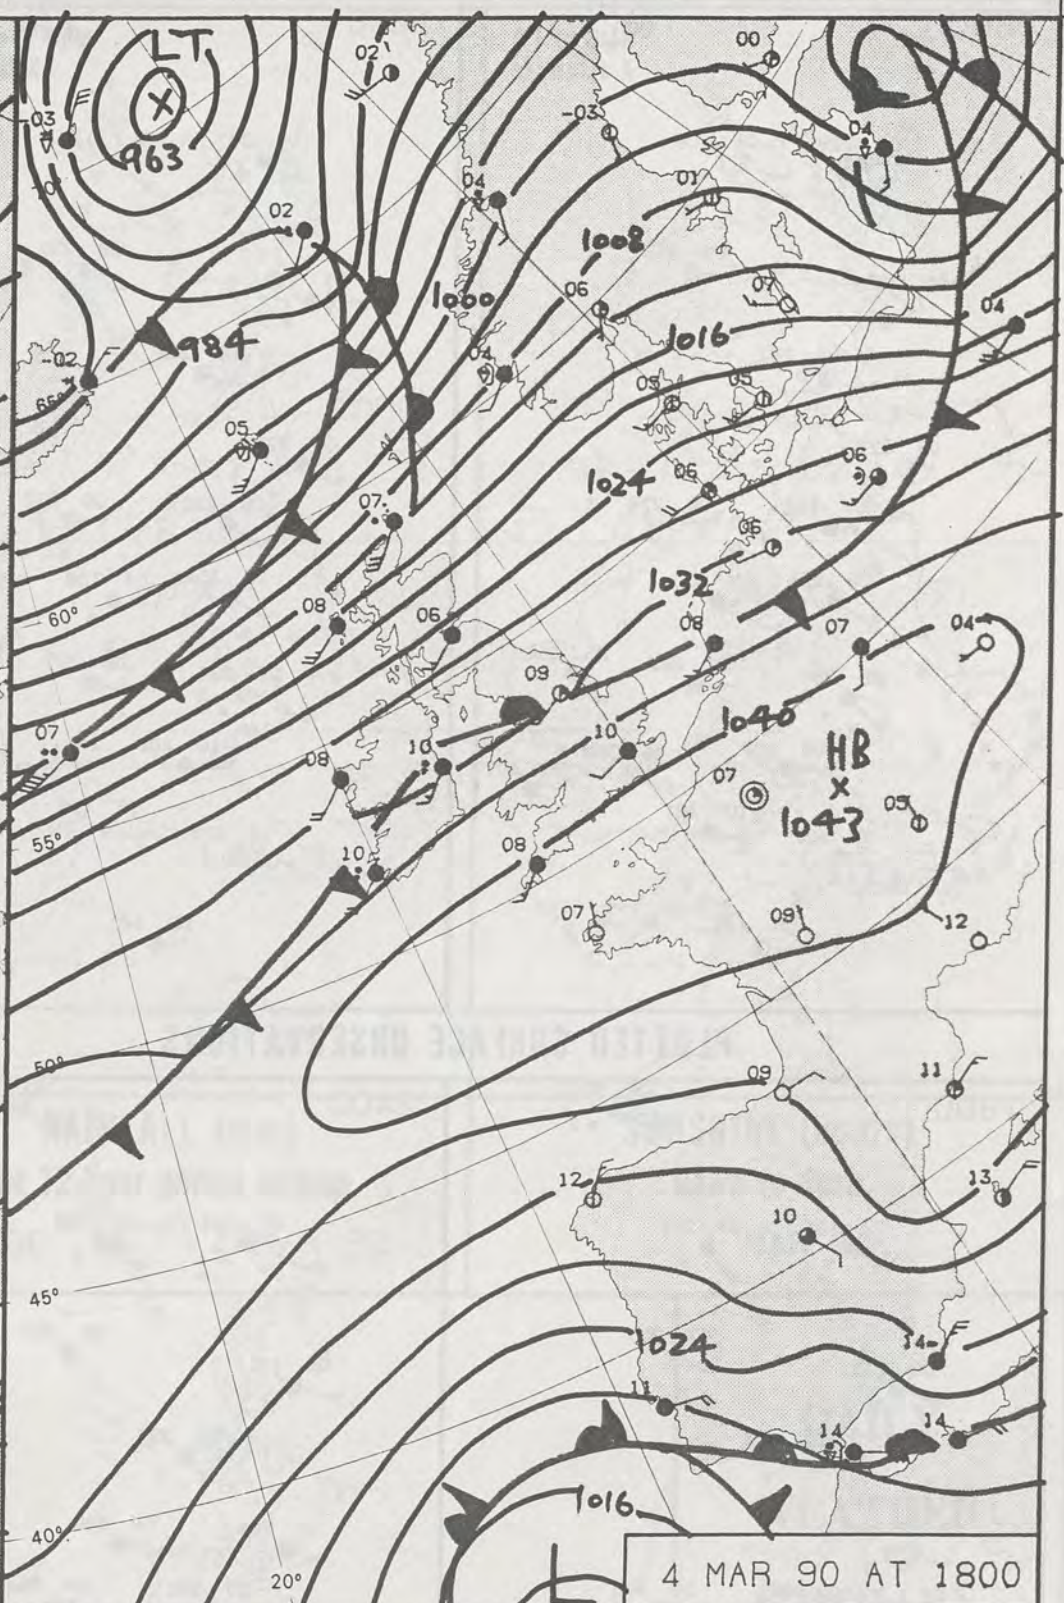 LT
963
-03
02
02
00
-03
04
04
01
1008
1000
06
07
1016
984
-02
65°
04
04
05
05
05
1024
06
06
07
06
60°
08
06
1032
08
07
04
09
1040
HB
07
10
10
08
07
1043
05
55°
10
08
07
09
12
50°
09
11
12
13
10
45°
1024
14
11
14
14
1016
40°
20°
L
4 MAR 90 AT 1800